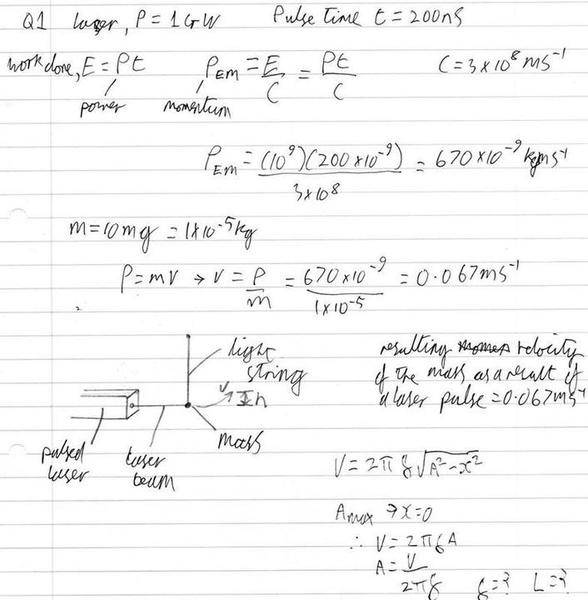 Q1 laser, P = 1GW Pulse time t = 200ns
work done, E = Pt P_EM = E/C = Pt/C C = 3×10⁸ms⁻¹
power momentum
P_EM = (10⁹)(200×10⁻⁹)/3×10⁸ = 670×10⁻⁹ kgms⁻¹
m = 10mg = 1×10⁻⁵kg
P = mv → v = P/m = 670×10⁻⁹/1×10⁻⁵ = 0.067ms⁻¹
light
string
v
h
mass
pulsed
laser
laser
beam
resulting velocity
of the mass as a result of
a laser pulse = 0.067ms⁻¹
V = 2πf√(A²-x²)
A_max → x=0
∴ V = 2πfA
A = V/2πf
f=? L=?